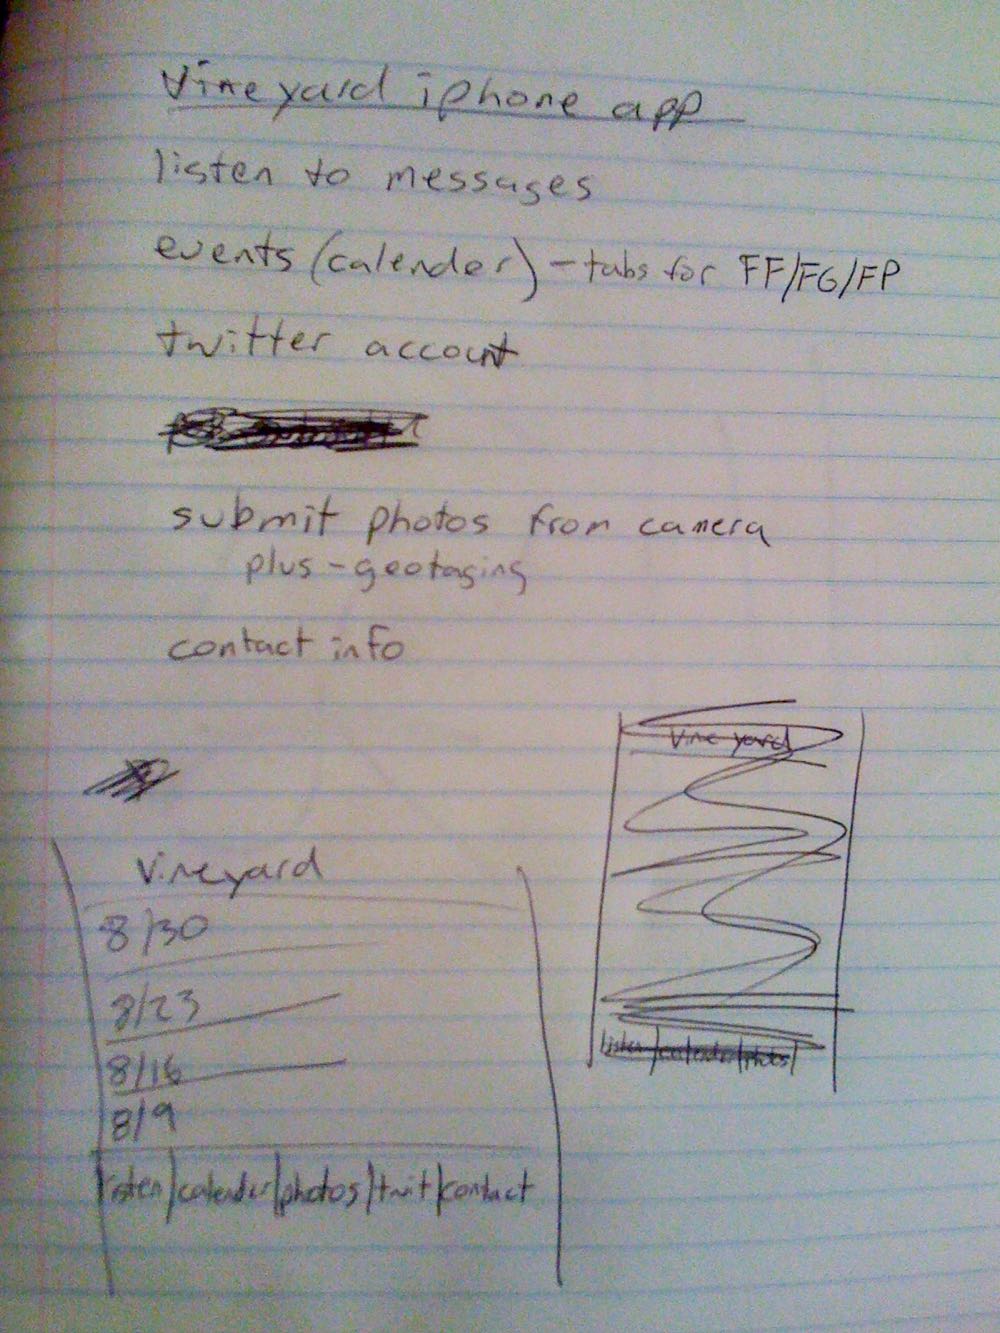 vineyard iphone app
listen to messages
events (calender) - tabs for FF/FG/FP
twitter account
submit photos from camera
plus - geotaging
contact info
Vineyard
8/30
8/23
8/16
8/9
listen|calender|photos|twit|contact
Vineyard
listen|calender|photos|